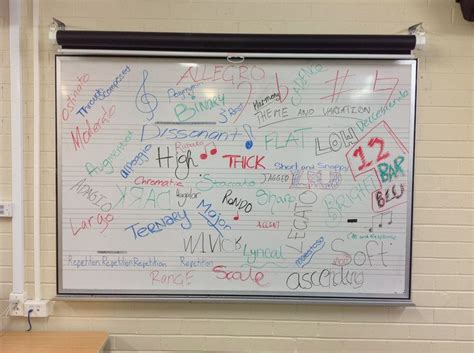 Ostinato
Through
Composed
Moderato
ALLEGRO
Binary
Rest
CADENCE
Harmony
THEME AND VARIATION
Decrescendo
Dissonant
FLAT
LOW
Augmented
Arpeggio
High
Rubato
THICK
Short and Snappy
JAGGED
12
BAR
BLUES
ADAGIO
DARK
Chromatic
Staccato
RONDO
Sharp
LEGATO
BRIGHT
Largo
Ternary
Major
ACCENT
MINOR
Lyrical
maestoso
Soft
Repetition Repetition Repetition
RANGE
Scale
ascending